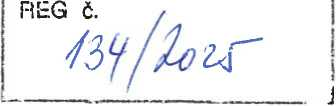 REG č.
134/2025